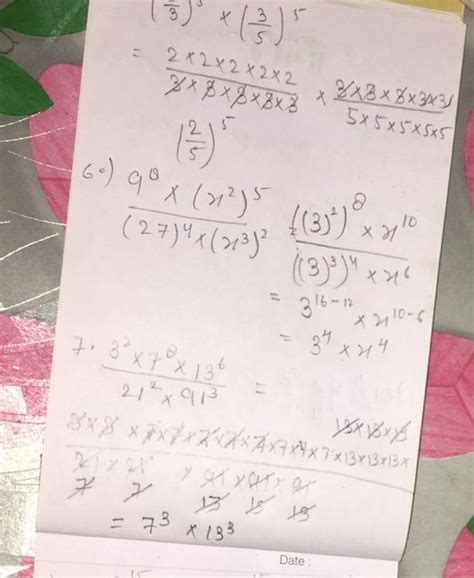 (2/3)^5 × (3/5)^5
= 2×2×2×2×2 / 3×3×3×3×3 × 3×3×3×3×3 / 5×5×5×5×5
(2/5)^5
6.) 9^8 × (x^2)^5 / (27)^4 × (x^3)^2 = ((3)^2)^8 × x^10 / ((3)^3)^4 × x^6
= 3^16-12 × x^10-6
= 3^4 × x^4
7. 3^2 × 7^8 × 13^6 / 21^2 × 91^3 =
13×13×13
3×3×7×7×7×7×7×7×7×7×13×13×13×
21×21 × 91×91×91
7 7 13 13 13
= 7^3 × 13^3
Date :